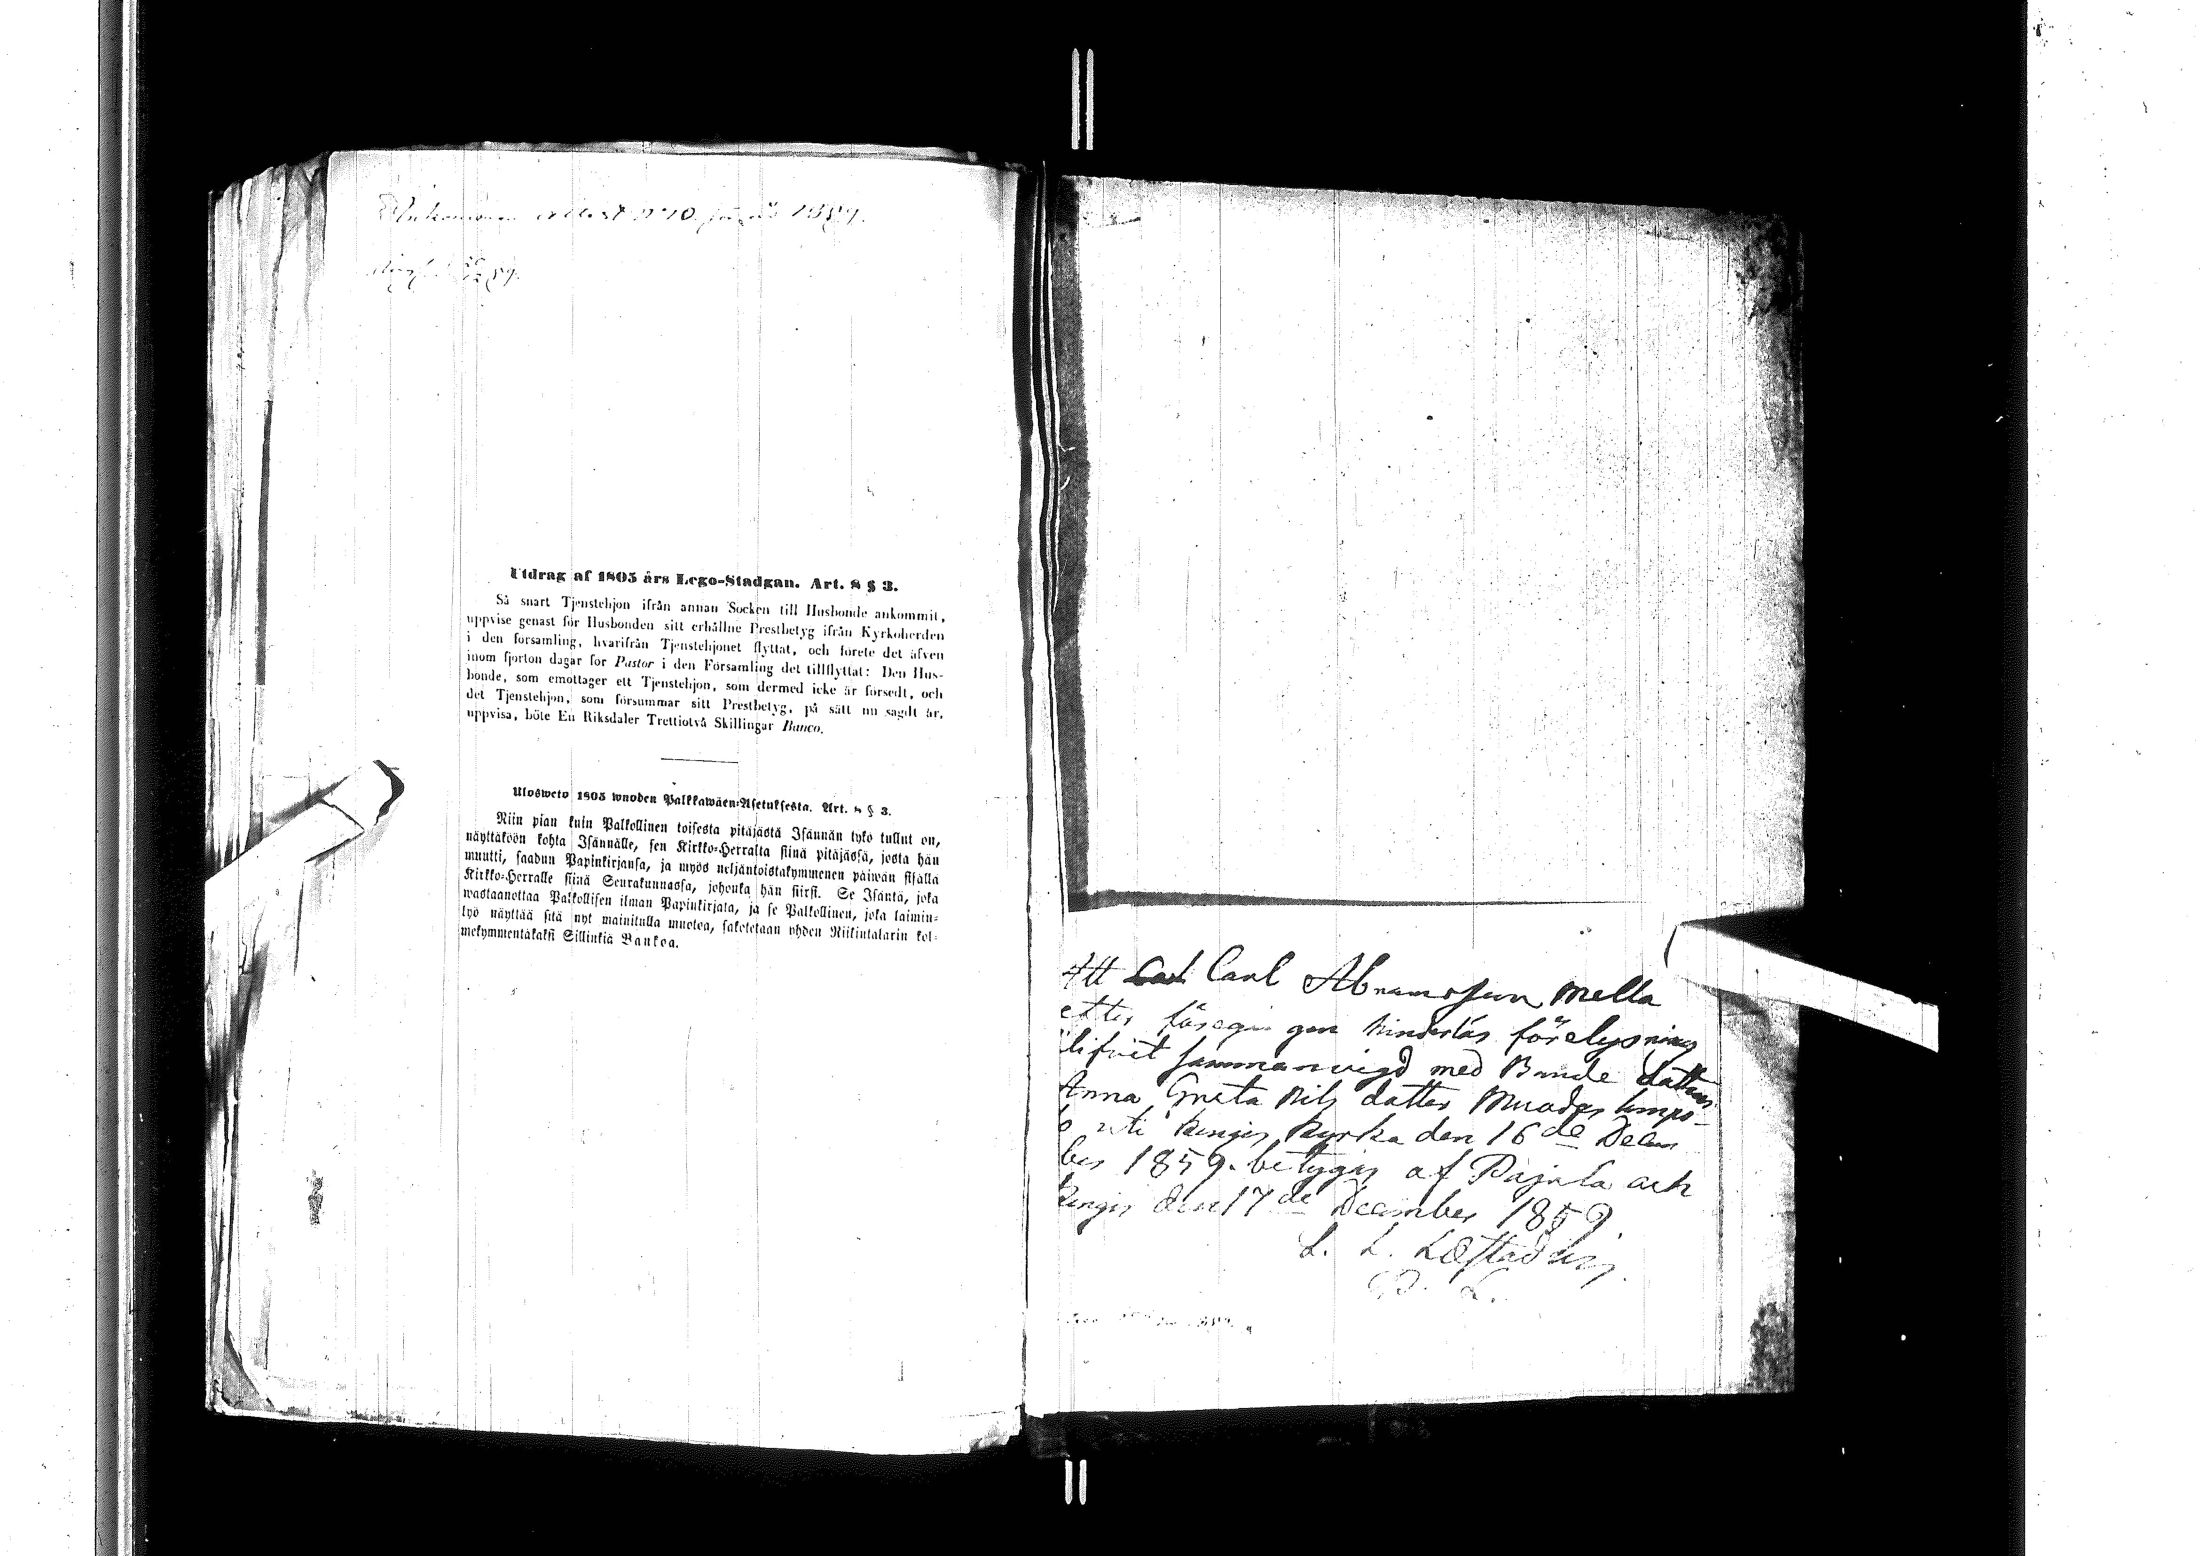 1859.
Utdrag af 1805 års Lego-Stadgan. Art. 8 § 3.
Så snart Tjenstehjon ifrån annan Socken till Husbonde ankommit,
uppvise genast för Husbonden sitt erhållne Prestbetyg ifrån Kyrkoherden
i den församling, hvarifrån Tjenstehjonet flyttat, och förete det äfven
inom fjorton dagar för Pastor i den Församling det tillflyttat: Den Hus-
bonde, som emottager ett Tjenstehjon, som dermed icke är försedt, och
det Tjenstehjon, som försummar sitt Prestbetyg, på sätt nu sagdt är,
uppvisa, böte En Riksdaler Trettiotvå Skillingar Banco.
Ulosweto 1805 wuoden Palkkawäen-Asetuksesta. Art. 8 § 3.
Niin pian kuin Palkollinen toisesta pitäjästä Isännän tykö tullut on,
näyttäköön kohta Isännälle, sen Kirkko-Herralta siinä pitäjässä, josta hän
muutti, saadun Papinkirjansa, ja myös neljäntoistakymmenen päiwän sisällä
Kirkko-Herralle siinä Seurakunnassa, johonka hän siirsi. Se Isäntä, joka
wastaanottaa Palkollisen ilman Papinkirjata, ja se Palkollinen, joka laimin-
lyö näyttää sitä nyt mainitulla muotoa, sakotetaan yhden Riikintalarin kol-
mekymmentäkaksi Sillinkiä Bankoa.
Att Carl Abramsson Mella
efter hinderlös förelysning
blifvit sammanvigd med Bonde dottren
Anna Greta Nils dotter
uti Kengis Kyrka den 16de Decem
ber 1859. betygis af Pajala och
Kengis den 17de December 1859.
L. L. Læstadius
P. L.